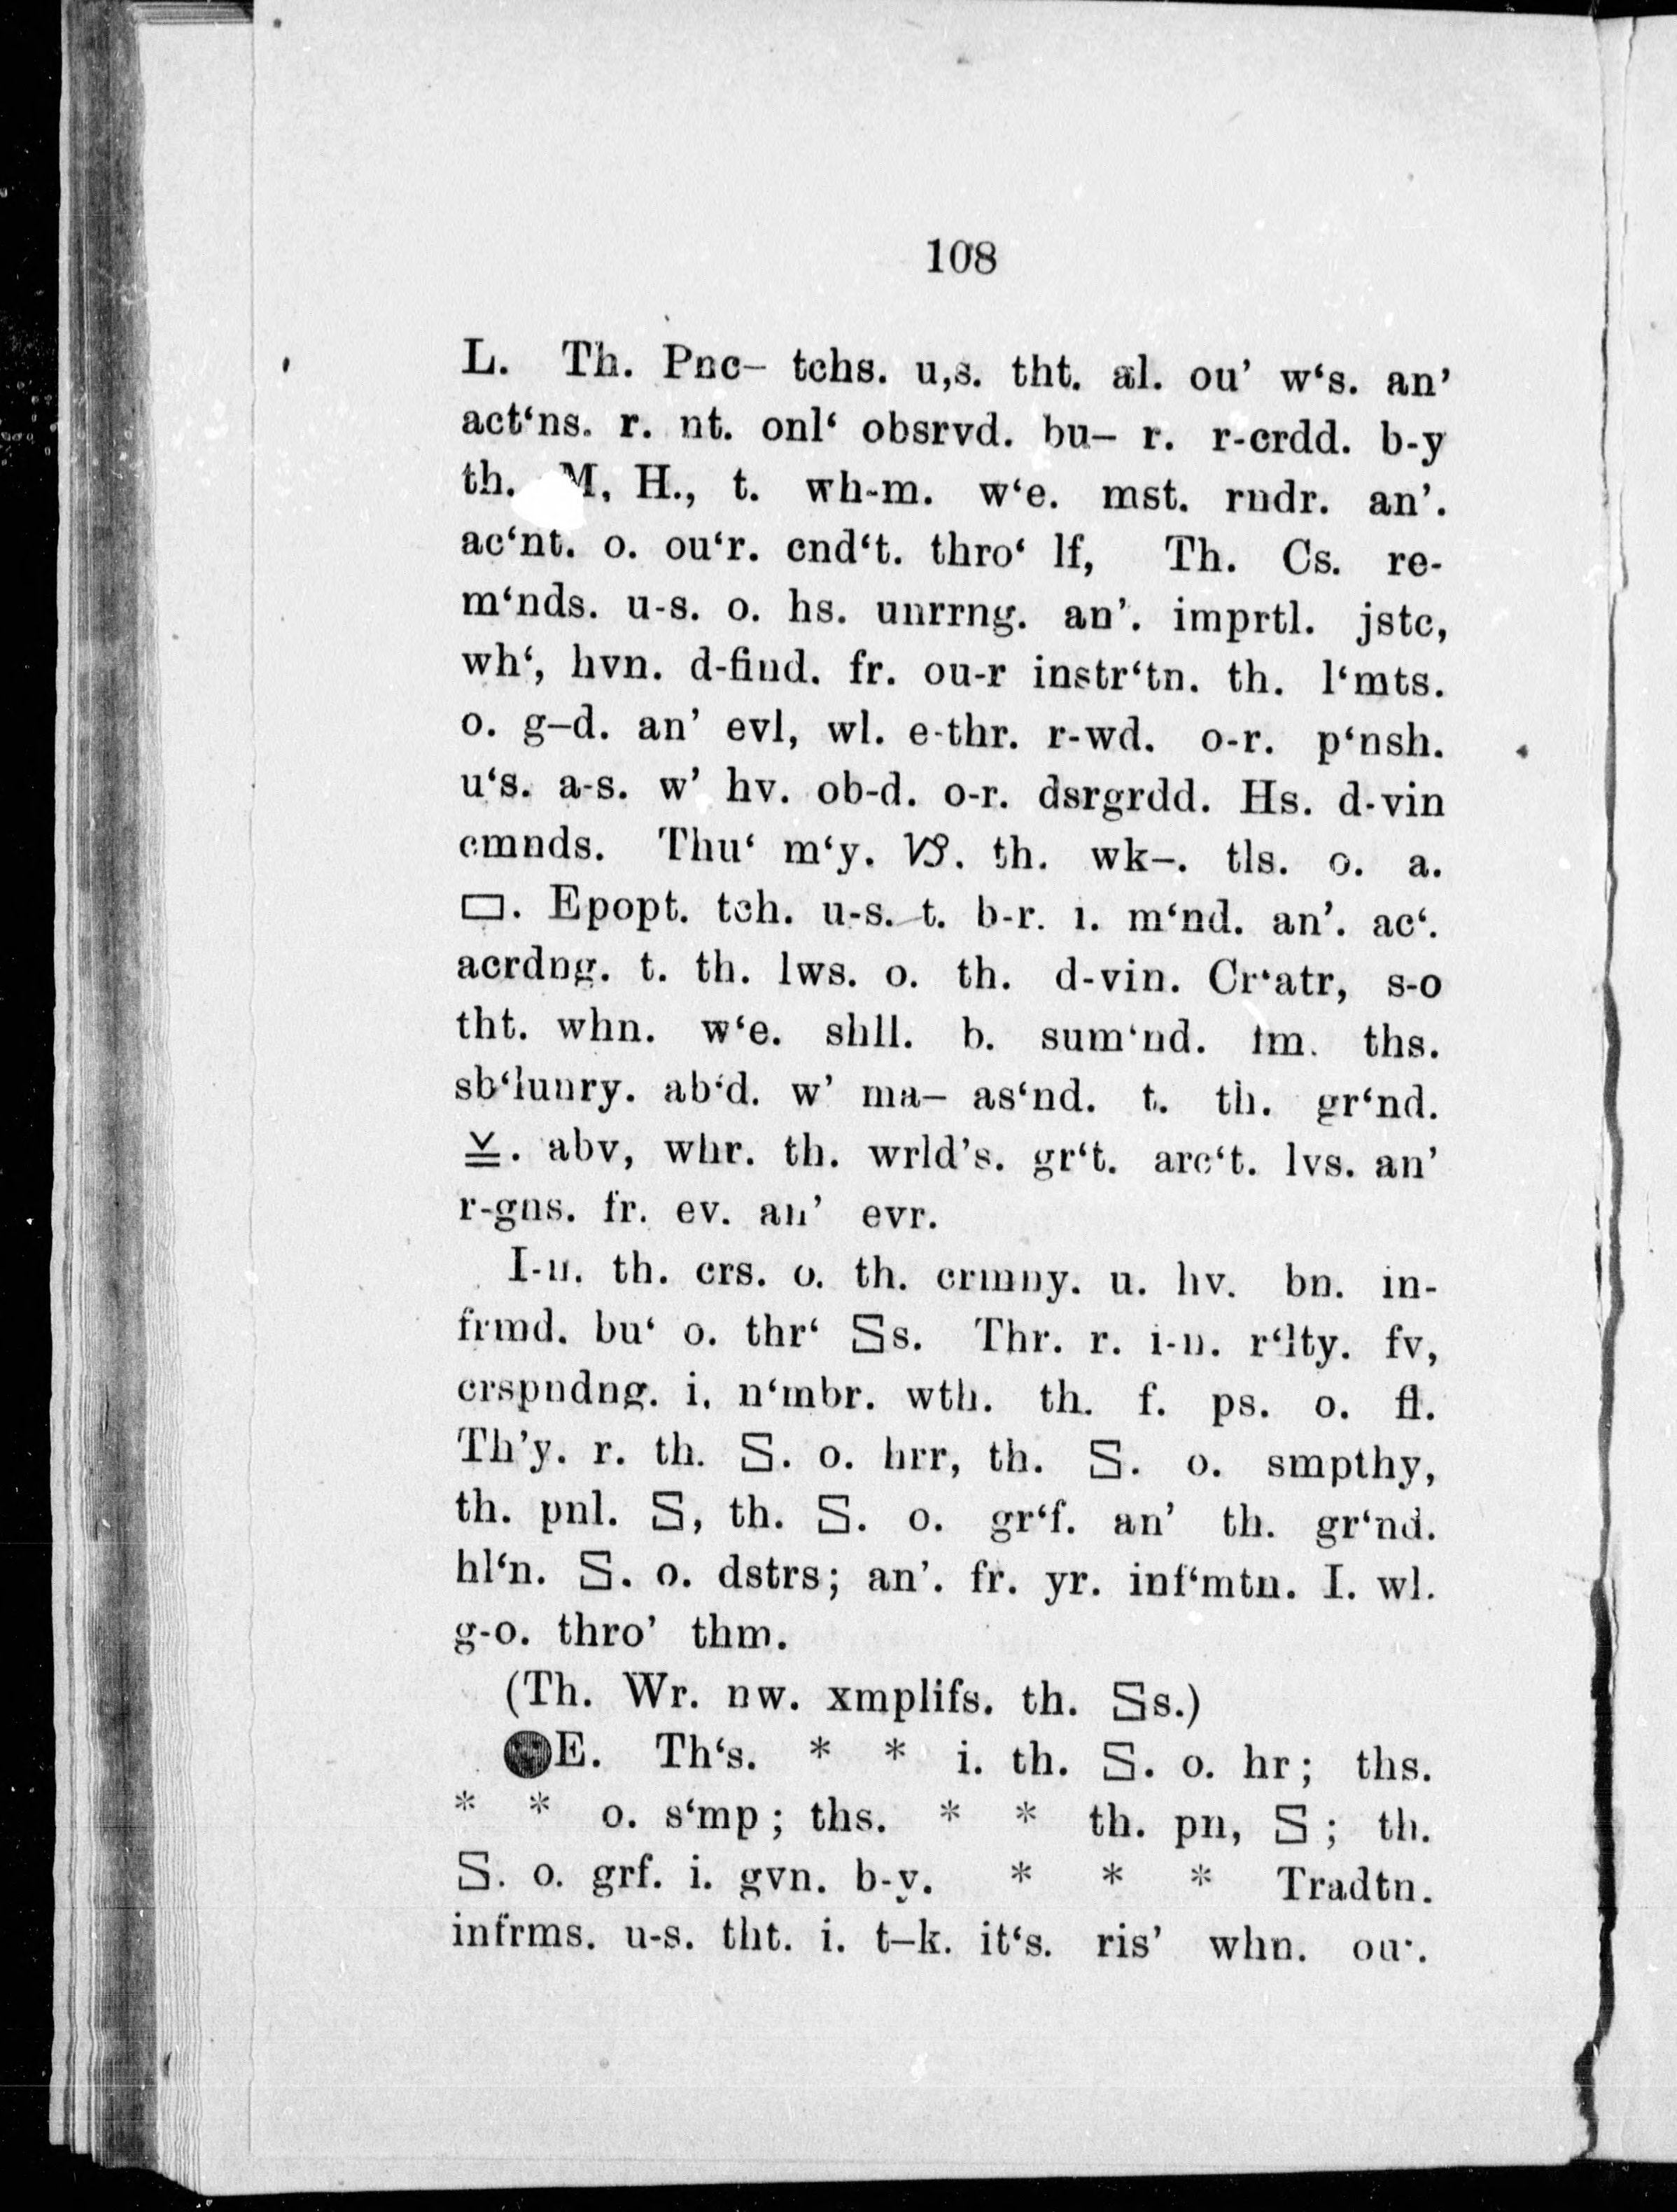 108
L. Th. Pnc– tchs. u,s. tht. al. ou’ w‘s. an’
act‘ns. r. nt. onl‘ obsrvd. bu– r. r-crdd. b-y
th. M, H., t. wh-m. w‘e. mst. rndr. an’.
ac‘nt. o. ou‘r. cnd‘t. thro‘ lf, Th. Cs. re-
m‘nds. u-s. o. hs. unrrng. an’. imprtl. jstc,
wh‘, hvn. d-find. fr. ou-r instr‘tn. th. l‘mts.
o. g–d. an’ evl, wl. e-thr. r-wd. o-r. p‘nsh.
u‘s. a-s. w’ hv. ob-d. o-r. dsrgrdd. Hs. d-vin
cmnds. Thu‘ m‘y. . th. wk–. tls. o. a.
▭. Epopt. tch. u-s. t. b-r. i. m‘nd. an’. ac‘.
acrdng. t. th. lws. o. th. d-vin. Cr‘atr, s-o
tht. whn. w‘e. shll. b. sum‘nd. fm. ths.
sb‘lunry. ab‘d. w’ ma– as‘nd. t. th. gr‘nd.
⊻. abv, whr. th. wrld’s. gr‘t. arc‘t. lvs. an’
r-gns. fr. ev. an’ evr.
I-n. th. crs. o. th. crmny. u. hv. bn. in-
frmd. bu‘ o. thr‘ Ss. Thr. r. i-n. r‘lty. fv,
crspndng. i. n‘mbr. wth. th. f. ps. o. fl.
Th’y. r. th. S. o. hrr, th. S. o. smpthy,
th. pnl. S, th. S. o. gr‘f. an’ th. gr‘nd.
hl‘n. S. o. dstrs; an’. fr. yr. inf‘mtn. I. wl.
g-o. thro’ thm.
(Th. Wr. nw. xmplifs. th. Ss.)
●E. Th‘s. * * i. th. S. o. hr; ths.
* * o. s‘mp; ths. * * th. pn, S; th.
S. o. grf. i. gvn. b-y. * * * Tradtn.
infrms. u-s. tht. i. t–k. it‘s. ris’ whn. ou‘.